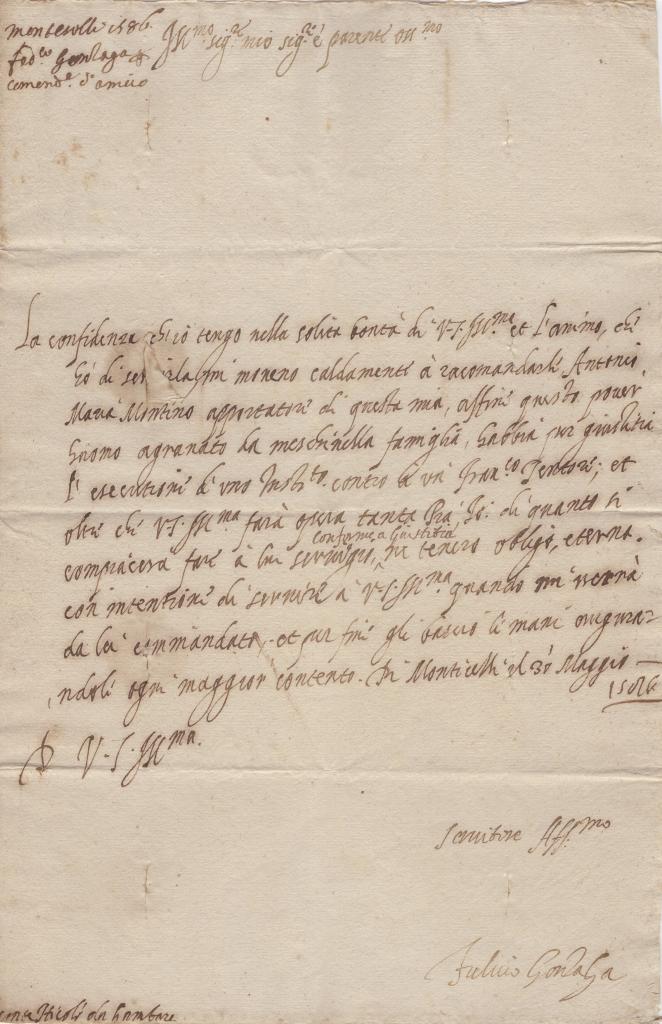 Montecelli 1586
Fed.co Gonzaga
Ill.mo sig.re mio sig.re è parente oss.mo
La confidenza ch'io tengo nella solita bontà di V.S. Ill.ma et l'animo, ch'
hò di servirla, mi moveno caldamente à racomandarle Antonio
Maria Montino apportatore di questa mia, affine questo pover
huomo agravato da meschinella famiglia, habbia per giustitia
l'essecutione d'uno Instr.to contro d'un Fran.co Tentore; et
oltre che V.S. Ill.ma farà opera tanto Pia, Io di quanto si
conforme à giustitia
compiacerà fare à lui servigio, ne tenerò obligo eterno.
con intentione di servire à V.S. Ill.ma quando mi verrà
da lei commandato, et per fine gli bascio le mani augura-
ndoli ogni maggior contento. Di Monticelli il 30 Maggio
1586
D V.S. Ill.ma
Servitore Aff.mo
Fulvio Gonzaga
Nicolò da Gambara